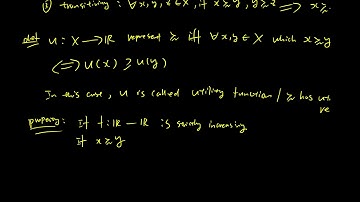 (i) transitivity : ∀ x,y,z ∈ X, if x≥y, y≥z ⟹ x≥
def u : X → IR represent ≥ iff ∀ x,y ∈ X which x≥y
⟺ u(x) ≥ u(y)
In this case, u is called utility function / ≥ has uti
re
property: If f : IR — IR is strictly increasing
if x≥y